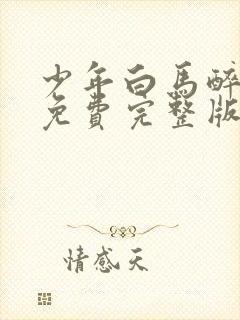 少年白馬醉
免費完整版
情感天